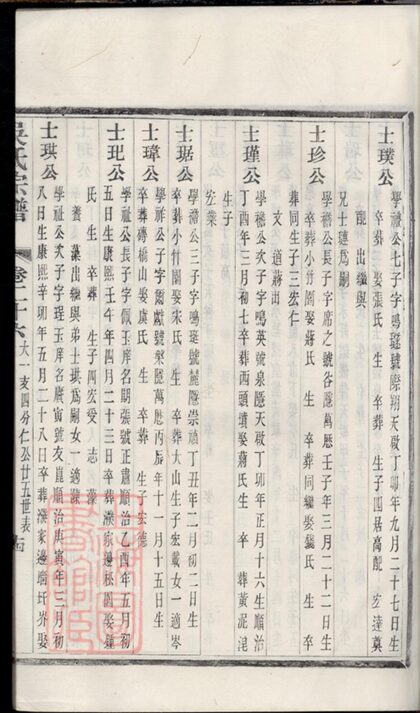 士璞公
學祿公七子字鳴珽號際翔天啟丁卯年九月二十七日生
卒葬 娶張氏 生 卒葬 生子四居高配 宏達奠
配出繼與
兄士璉爲嗣
士珍公
學繼公長子字席之號谷隱萬厯壬子年三月二十二日生
卒葬小竹園娶蔣氏 生 卒葬同繼娶龔氏 生 卒
葬同生子三宏仁
文道蔣出
士瑾公
公次子字鳴英號泉隱天啟丁卯年正月十六生順治
丁四年三月初七卒葬西頭墳娶蔣氏 生 卒 葬黃泥
生子
宏業
士琚公
公三子字鳴 號 隱崇禎丁丑年二月初二日生
卒葬小竹園娶宋氏 生 卒葬大山生子宏載女一適岑
士瑋公
學祥公子字爾獻號 隱萬厯丙辰年十一月十五日生
卒葬磚橋山娶虞氏 生 卒葬 生子宏德
士玘公
學祉公長子字佩玉庠名期張號正 順治乙酉年五月初
五日生康熙壬午年四月二十三日卒葬 家邊松園娶鍾
氏 生 卒葬 生子四宏受人 志
養 藻出繼與弟士珙爲嗣女一適陳
士珙公
學祉公次子字珵玉庠名 寅號友崑順治庚寅年三月初
八日生康熙辛卯年五月二十八日卒葬 家邊 圩 娶
吳氏宗譜 卷二十六 大一支四分仁公廿五世表 四